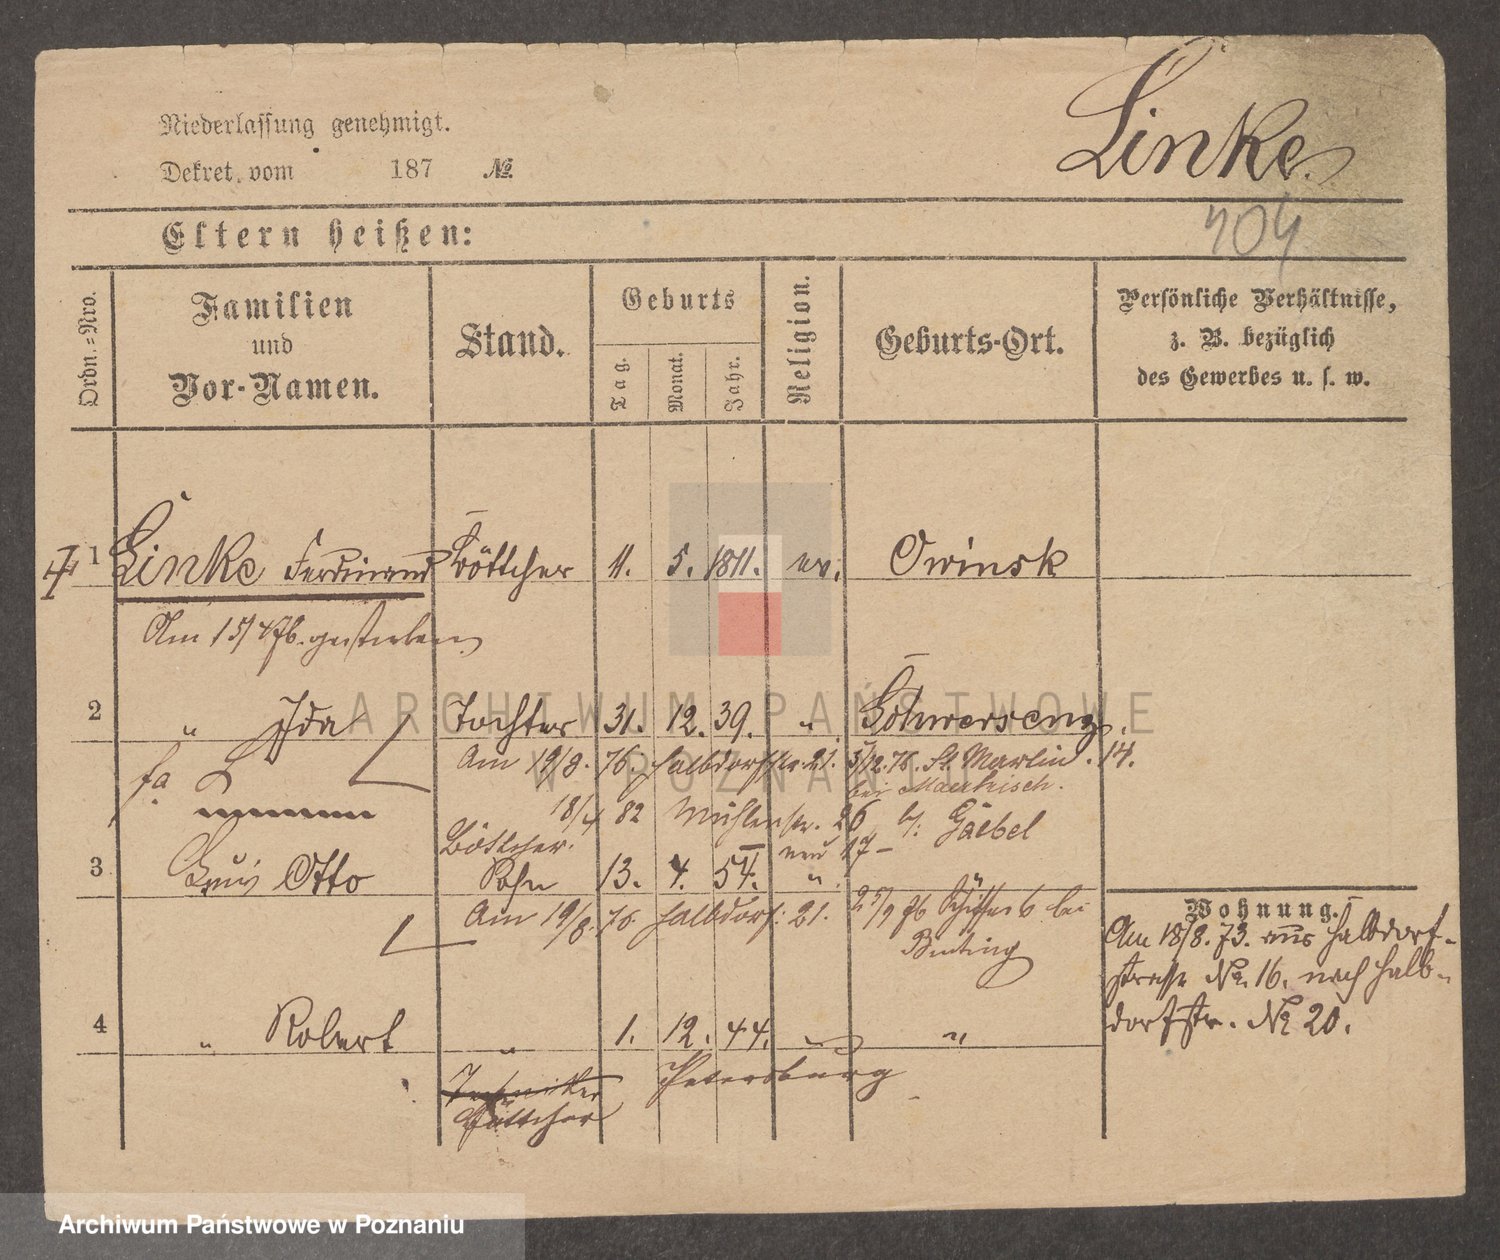 Niederlassung genehmigt.
Dekret vom 187 №.
Linke.
404
Eltern heißen:
Ordn.=Nro.
Familien und Vor-Namen.
Stand.
Geburts
Tag.
Monat.
Jahr.
Religion.
Geburts-Ort.
Persönliche Verhältnisse,
z. B. bezüglich
des Gewerbes u. s. w.
1 Linke Ferdinand Böttcher 11. 5. 1811. ev. Owinsk
Am 15/4 76. gestorben
2 " Ida Tochter 31. 12. 39. " Schwersenz.
Am 19/8. 76. Halbdorfstr. 21. 5/12. 76. St. Martin. 14.
bei
18/4 82 Mühlenstr. 26 b/: Gaebel
neu 17-
Böttcher.
3 Otto Sohn 13. 4. 54. "
Am 19/8. 76. Halbdorf: 21. bei
Wohnung.
Am 18/8. 73. aus Halbdorf-
strasse No. 16. nach Halb-
dorfstr. No 20.
4 " Robert " 1. 12. 44. " "
Techniker Petersburg
Böttcher
ARCHIWUM PAŃSTWOWE
W POZNANIU
Archiwum Państwowe w Poznaniu